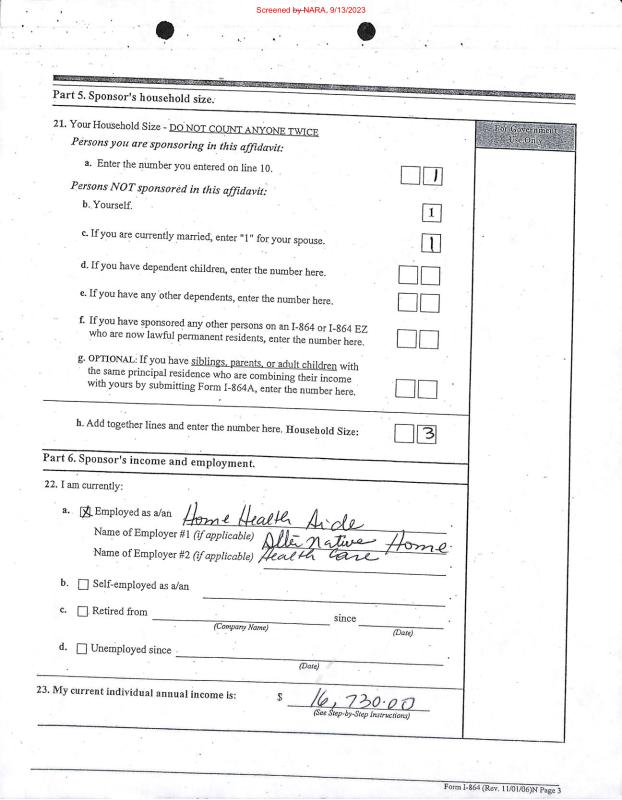 Screened by NARA, 9/13/2023
Part 5. Sponsor's household size.
For Government Use Only
21. Your Household Size - DO NOT COUNT ANYONE TWICE
Persons you are sponsoring in this affidavit:
a. Enter the number you entered on line 10. 1
Persons NOT sponsored in this affidavit:
b. Yourself. 1
c. If you are currently married, enter "1" for your spouse. 1
d. If you have dependent children, enter the number here.
e. If you have any other dependents, enter the number here.
f. If you have sponsored any other persons on an I-864 or I-864 EZ
who are now lawful permanent residents, enter the number here.
g. OPTIONAL: If you have siblings, parents, or adult children with
the same principal residence who are combining their income
with yours by submitting Form I-864A, enter the number here.
h. Add together lines and enter the number here. Household Size: 3
Part 6. Sponsor's income and employment.
22. I am currently:
a. X Employed as a/an Home Health Aide
Name of Employer #1 (if applicable) Alter Native Home
Name of Employer #2 (if applicable) Health Care
b. Self-employed as a/an
c. Retired from since
(Company Name) (Date)
d. Unemployed since
(Date)
23. My current individual annual income is: $ 16,730.00
(See Step-by-Step Instructions)
Form I-864 (Rev. 11/01/06)N Page 3